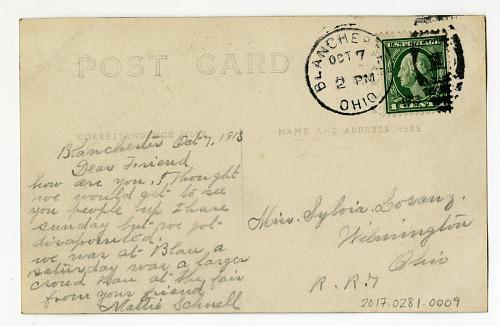 POST CARD
BLANCHESTER
OCT 7
2 PM
OHIO
U.S. POSTAGE
CORRESPONDENCE HERE
NAME AND ADDRESS HERE
Blanchester Oct 7, 1913
Dear Friend
how are you, I thought
we would get to see
you people up here
sunday but we got
disapointed,
we was at Blan, a
saturday was a larger
crowd than at the fair
from your friend
Mattie Schnell
Miss. Sylvia
Wilmington
Ohio
R.R.7
2017.0281.0009